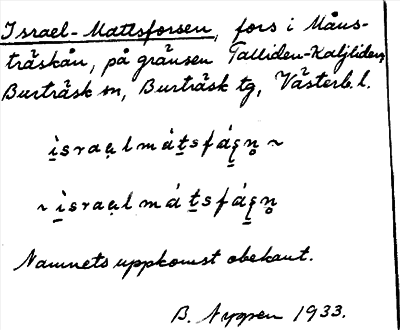 Israel-Mattsforsen, fors i Måns-
träskån, på gränsen Talliden-Kaljliden,
Burträsk sn, Burträsk tg, Västerb. l.
i̱sraẹl má ṯsfáꞔn̥ ~
~ i̱sraẹl má ṯsfáꞔn̥
Namnets uppkomst obekant.
B. Nygren 1933.